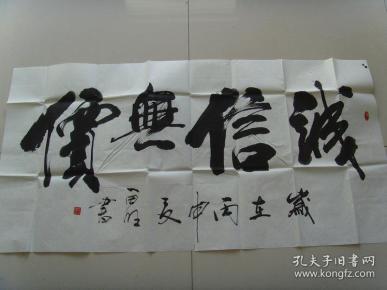 誠信無價
歲在丙申夏百旺書
孔夫子旧书网
www.kongfz.com